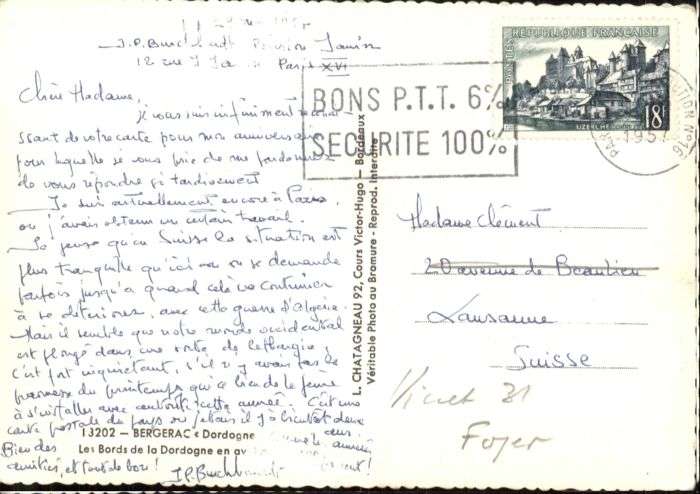 J.P. Burckhardt Pension Janin
12 rue Paris XVI
Chère Madame,
je vous suis infiniment reconnais-
sant de votre carte pour mon anniversaire
pour laquelle je vous prie de me pardonner
de vous répondre si tardivement
Je suis actuellement encore à Paris,
ou j'avais obtenu un certain travail.
Je pense qu'en Suisse la situation est
plus tranquille qu'ici ou on se demande
parfois jusqu'à quand celà va continuer
à se détériorer, avec cette guerre d'Algérie.
Mais il semble que notre monde occidental
est plongé dans une sorte de lethargie,
c'est fort inquiétant, s'il n'y avait pas la
promesse du printemps qui a bien de la peine
à s'installer avec cette année. C'est une
carte postale du pays ou j'étais il y a bientot deux
ans.
Bien des
amitiés, et tout de bon! J.P. Burckhardt
13202 – BERGERAC « Dordogne
Les Bords de la Dordogne en av
L. CHATAGNEAU 92, Cours Victor-Hugo — Bordeaux
Véritable Photo au Bromure - Reprod. Interdite
BONS P.T.T. 6%
SECURITE 100%
POSTES
RÉPUBLIQUE FRANÇAISE
18F
UZERCHE
Madame Clément
20 avenue de Beaulieu
Lausanne
Suisse
Vinet 31
Foyer